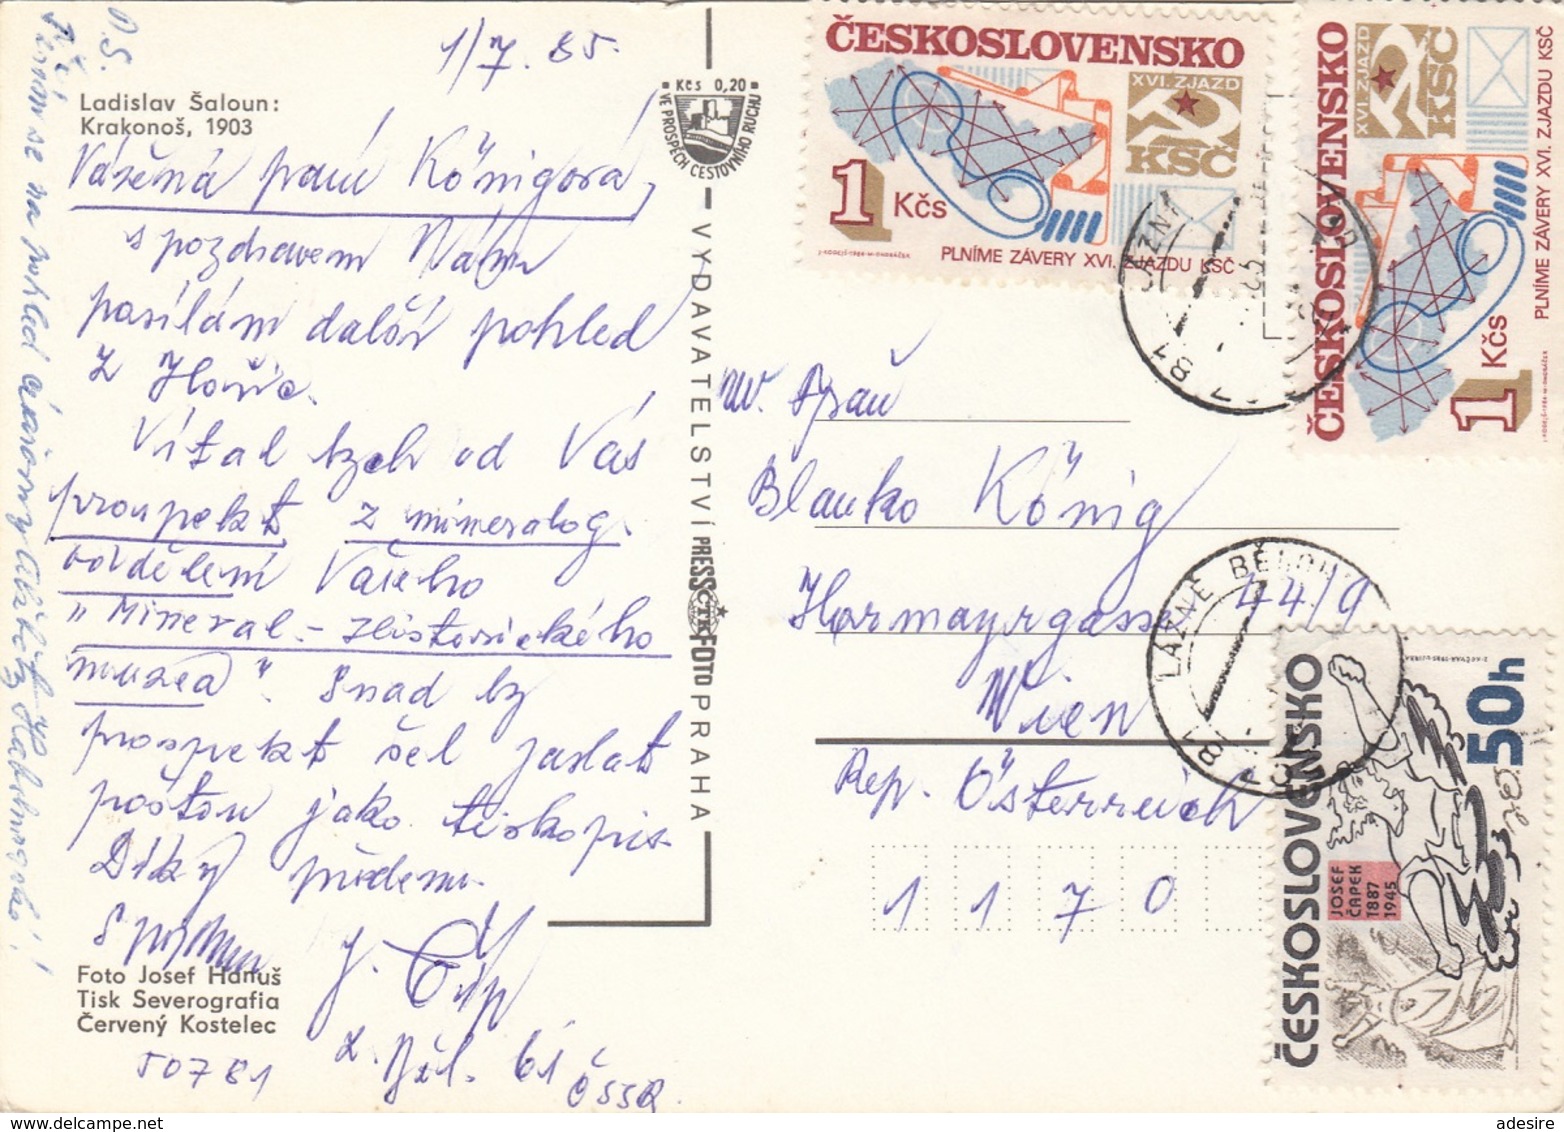 1/7. 85.
Ladislav Šaloun:
Krakonoš, 1903
Vážená paní Königová,
s pozdravem Vám
posílám další pohled
z Hořic.
Vítal bych od Vás
prospekt z mineralog.
oddělení Vašeho
"Mineral.-Historického
muzea". Snad by
prospekt šel zaslat
poštou jako tiskopis.
Díky předem.
S
J. Číp
L. Běl. 61
50781 ČSSR.
Foto Josef Hanuš
Tisk Severografia
Červený Kostelec
P.S.
se na pohled
Kčs 0,20
VE PROSPĚCH CESTOVNÍHO RUCHU
VYDAVATELSTVÍ PRESSFOTO PRAHA
ČTK
ČESKOSLOVENSKO
XVI. ZJAZD
KSČ
1 Kčs
PLNÍME ZÁVERY XVI. ZJAZDU KSČ
ČESKOSLOVENSKO
XVI. ZJAZD
KSČ
1 Kčs
PLNÍME ZÁVERY XVI. ZJAZDU KSČ
Frau
Blanko König
Hormayrgasse 44/9
Wien
Rep. Österreich
1170
LÁZNĚ BĚLOHR
507 81
ČESKOSLOVENSKO
50h
JOSEF
ČAPEK
1887
1945
adesire